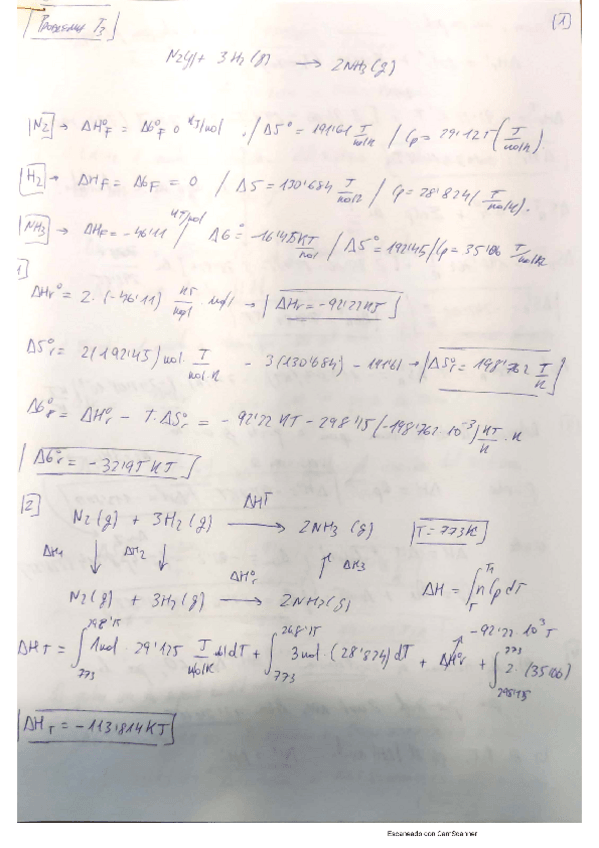 Problemas T3
[1]
N2(g) + 3H2(g) → 2NH3(g)
|N2| → ΔH°F = ΔG°F 0 KJ/mol / ΔS° = 191'61 J/molK / Cp = 29'125 (J/molK)
|H2| → ΔHF = ΔGF = 0 / ΔS = 130'684 J/molK / Cp = 28'824 (J/molK).
|NH3| → ΔHF = -46'11 KJ/mol / ΔG° = 16'45 KJ/mol / ΔS° = 192'45 / Cp = 35'06 J/molK
1]
ΔHr° = 2·(-46'11) KJ/mol · mol → |ΔHr = -92'22 KJ|
ΔS°r = 2(192'45) mol · J/mol·K - 3(130'684) - 191'61 → |ΔS°r = 198'762 J/K|
ΔG°r = ΔH°r - T·ΔS°r = -92'22 KJ - 298'15 (-198'762·10^-3) KJ/K · K
|ΔG°r = -32'97 KJ|
|2] N2(g) + 3H2(g) → ΔHT 2NH3(g) |T = 773K|
ΔH1 ↓ ΔH2 ↓ ↑ ΔH3
ΔH°r ΔH = ∫ T T1 n Cp dT
N2(g) + 3H2(g) → 2NH3(g)
ΔHT = ∫ 773 298'15 1mol · 29'125 J/molK dT + ∫ 773 268'15 3mol·(28'824) dT + ΔH°r → -92'22 10^3 J + ∫ 298'15 773 2·(35'06)
|ΔHT = -113'814 KJ|
Escaneado con CamScanner